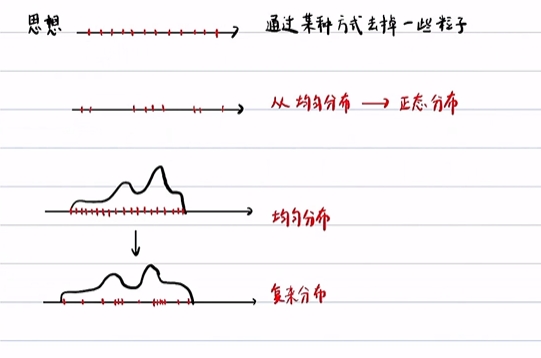 思想 通过某种方式去掉一些粒子
从均匀分布 → 正态分布
均匀分布
复杂分布